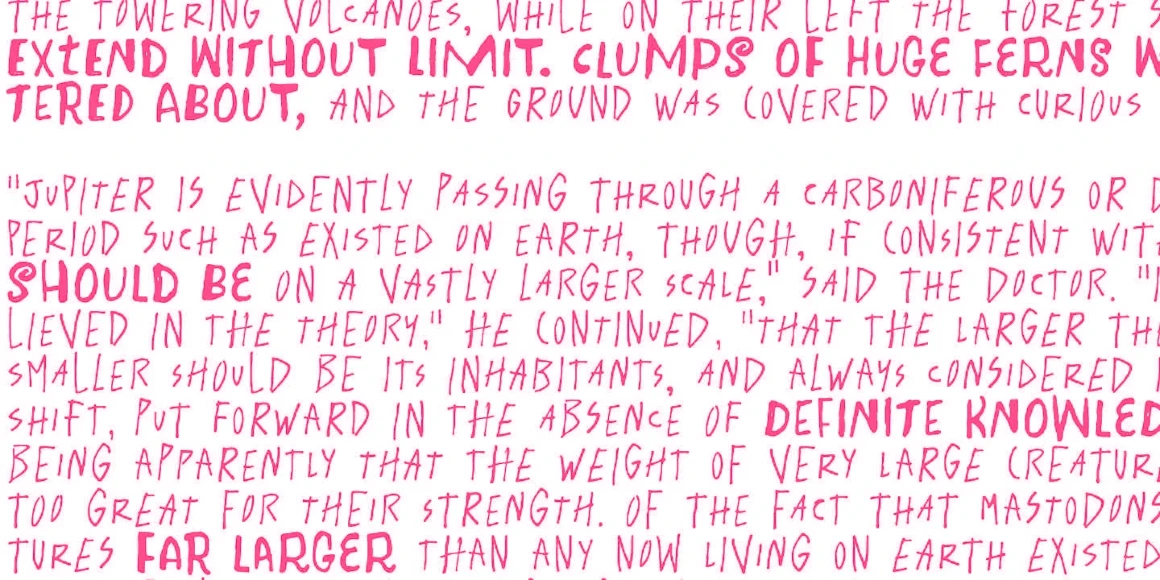 THE TOWERING VOLCANOES, WHILE ON THEIR LEFT THE FOREST
EXTEND WITHOUT LIMIT. CLUMPS OF HUGE FERNS
TERED ABOUT, AND THE GROUND WAS COVERED WITH CURIOUS
"JUPITER IS EVIDENTLY PASSING THROUGH A CARBONIFEROUS OR
PERIOD SUCH AS EXISTED ON EARTH, THOUGH, IF CONSISTENT
SHOULD BE ON A VASTLY LARGER SCALE," SAID THE DOCTOR.
LIEVED IN THE THEORY," HE CONTINUED, "THAT THE LARGER
SMALLER SHOULD BE ITS INHABITANTS, AND ALWAYS CONSIDERED
SHIFT, PUT FORWARD IN THE ABSENCE OF DEFINITE KNOWLED
BEING APPARENTLY THAT THE WEIGHT OF VERY LARGE CREATUR
TOO GREAT FOR THEIR STRENGTH. OF THE FACT THAT MASTODONS
TURES FAR LARGER THAN ANY NOW LIVING ON EARTH EXISTED